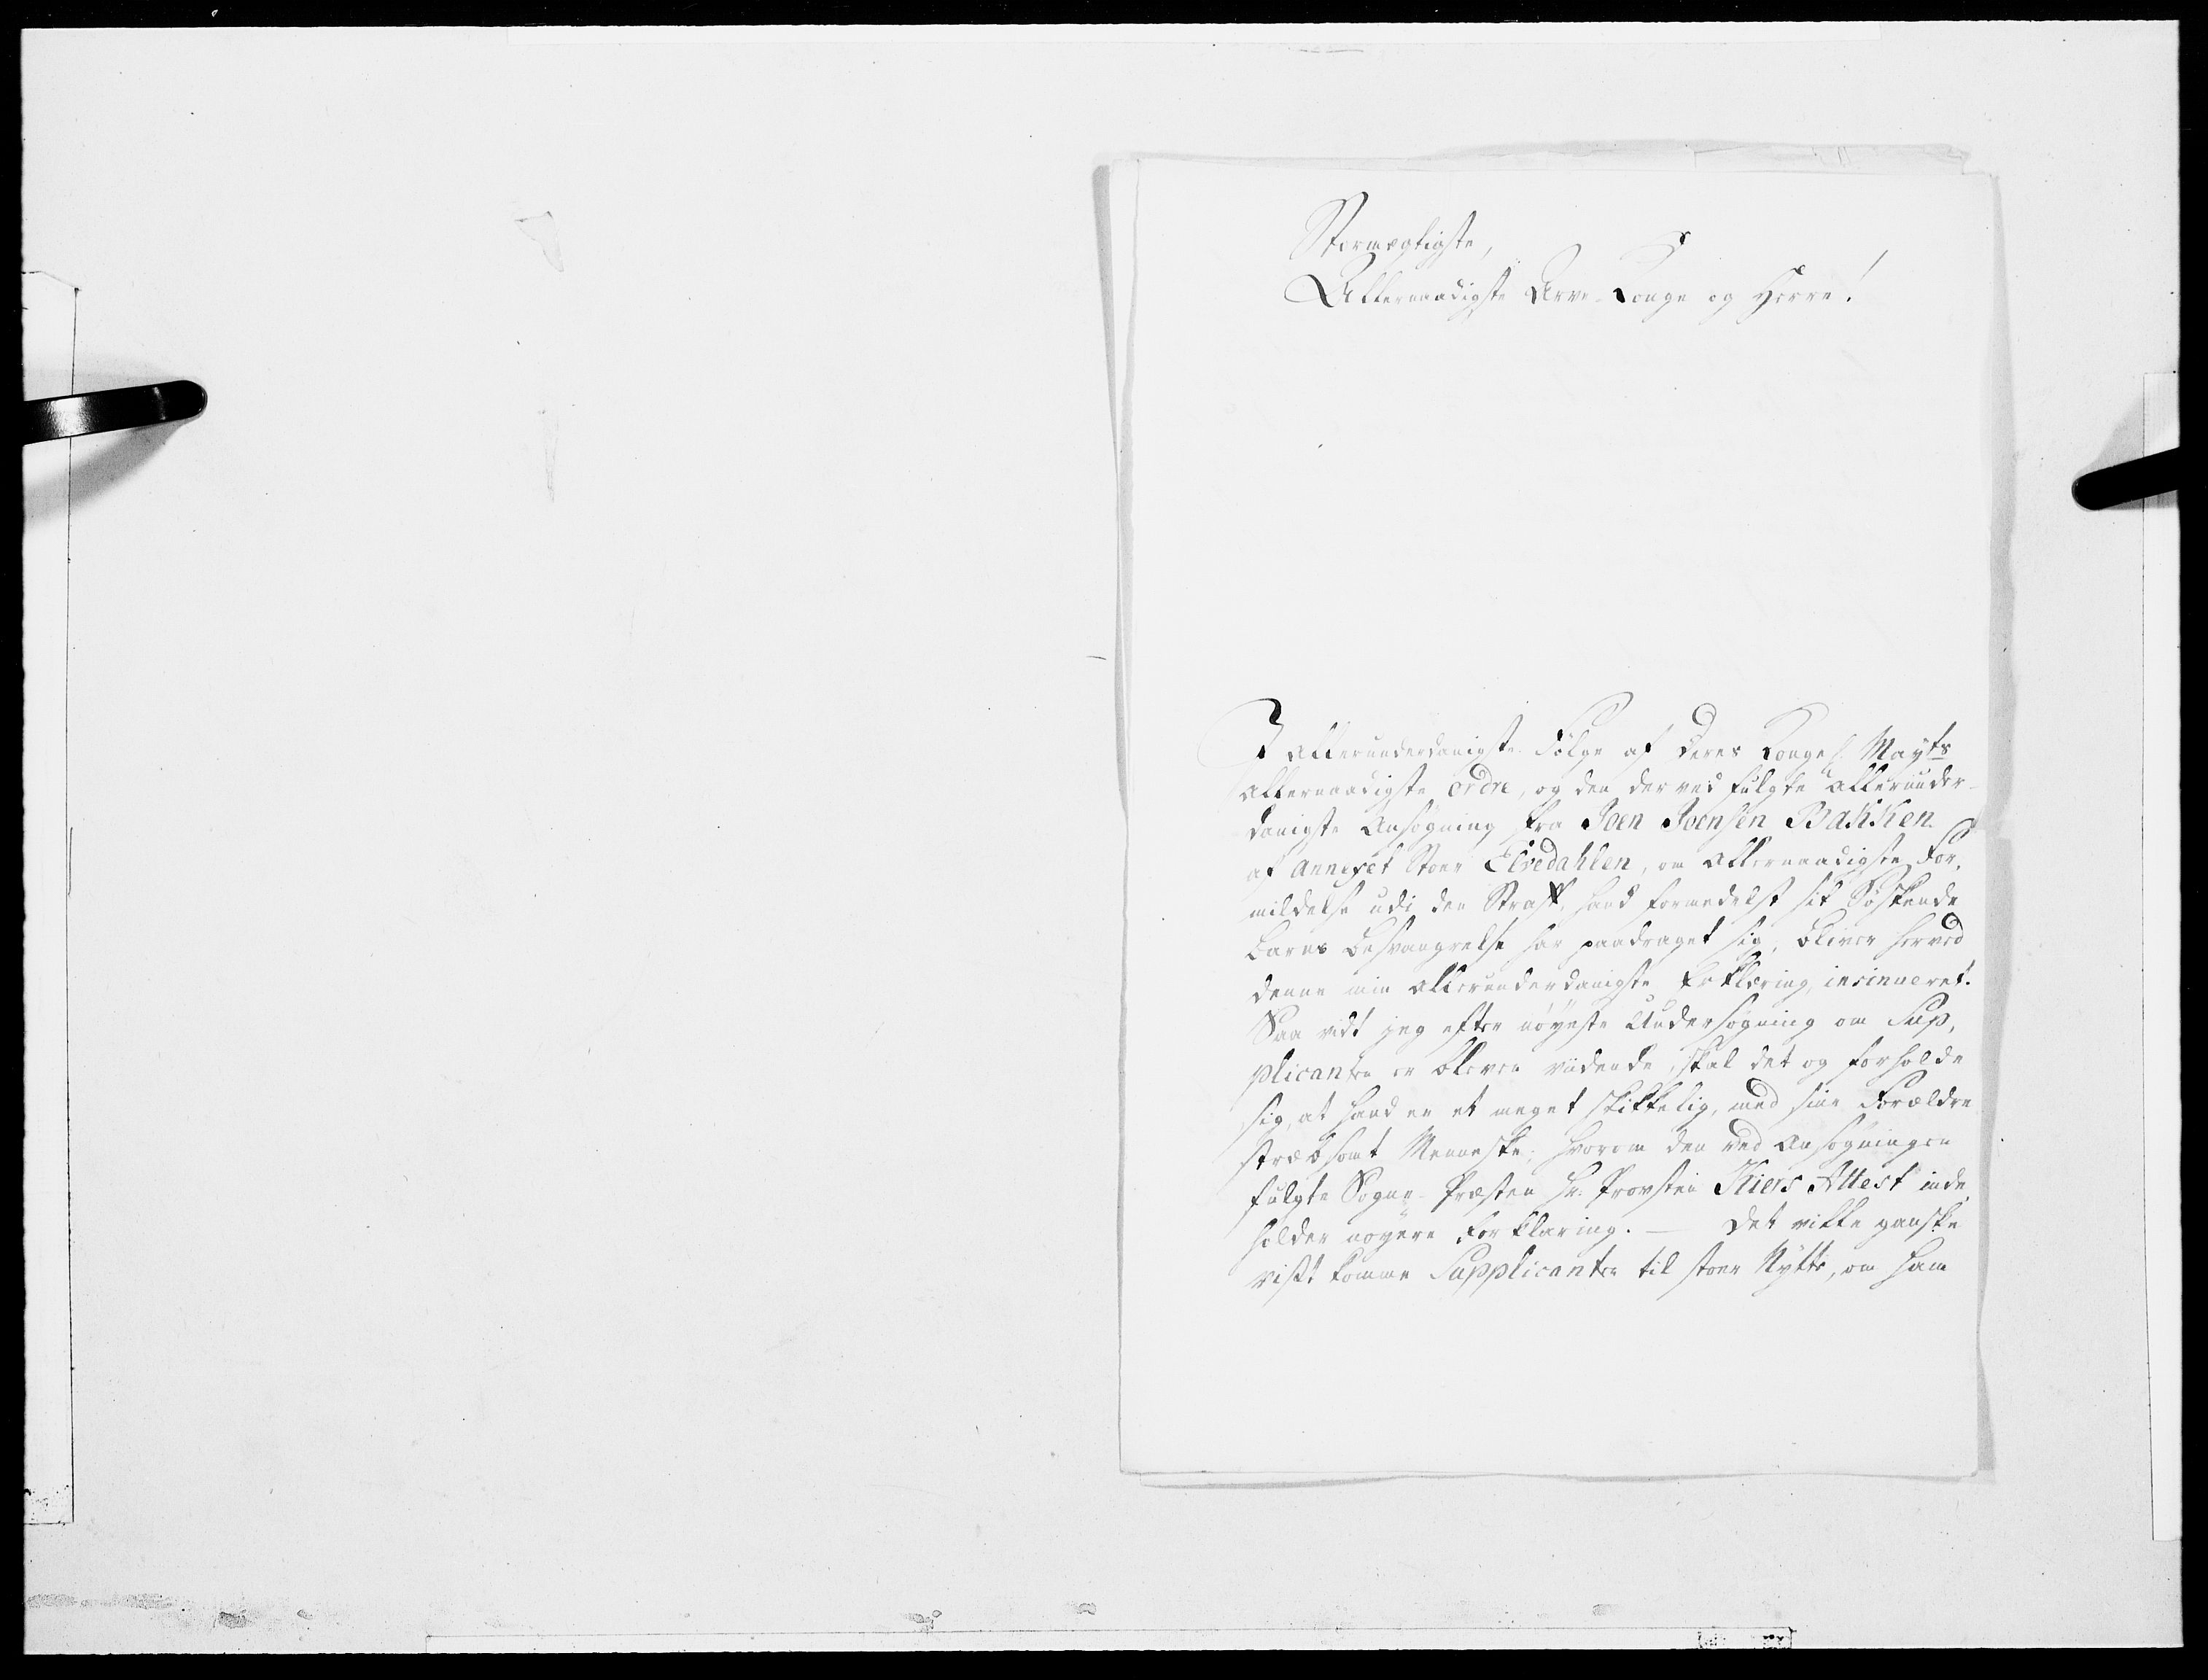 Stormægtigste,
Allernaadigste Arve-Konge og Herre!
I allerunderdanigste Følge af Deres Kongel. Mayts
allernaadigste ordre, og den der ved fulgte allerunder-
danigste Ansøgning fra Joen Joensen Bakken
af Annexet Stoer Elvedahlen, om allernaadigste For-
mildelse udi den Straf, hand formedelst sit Søskende
Barns besvangrelse har paadraget sig, bliver herved
denne min allerunderdanigste Erklæring insinueret.
Saa vidt jeg efter nöyeste Undersøgning om Sup-
plicanten er bleven vidende, skal det og forholde
sig, at hand er et meget skikkelig, med sine Forældre
stræbsomt Menneske; hvorom den ved Ansøgningen
fulgte Sogne-Præsten Hr. Provsten Kiers Attest inde
holder nøyere Forklaring. — Det vilde ganske
vist komme Supplicanten til stoer Nytte, om ham